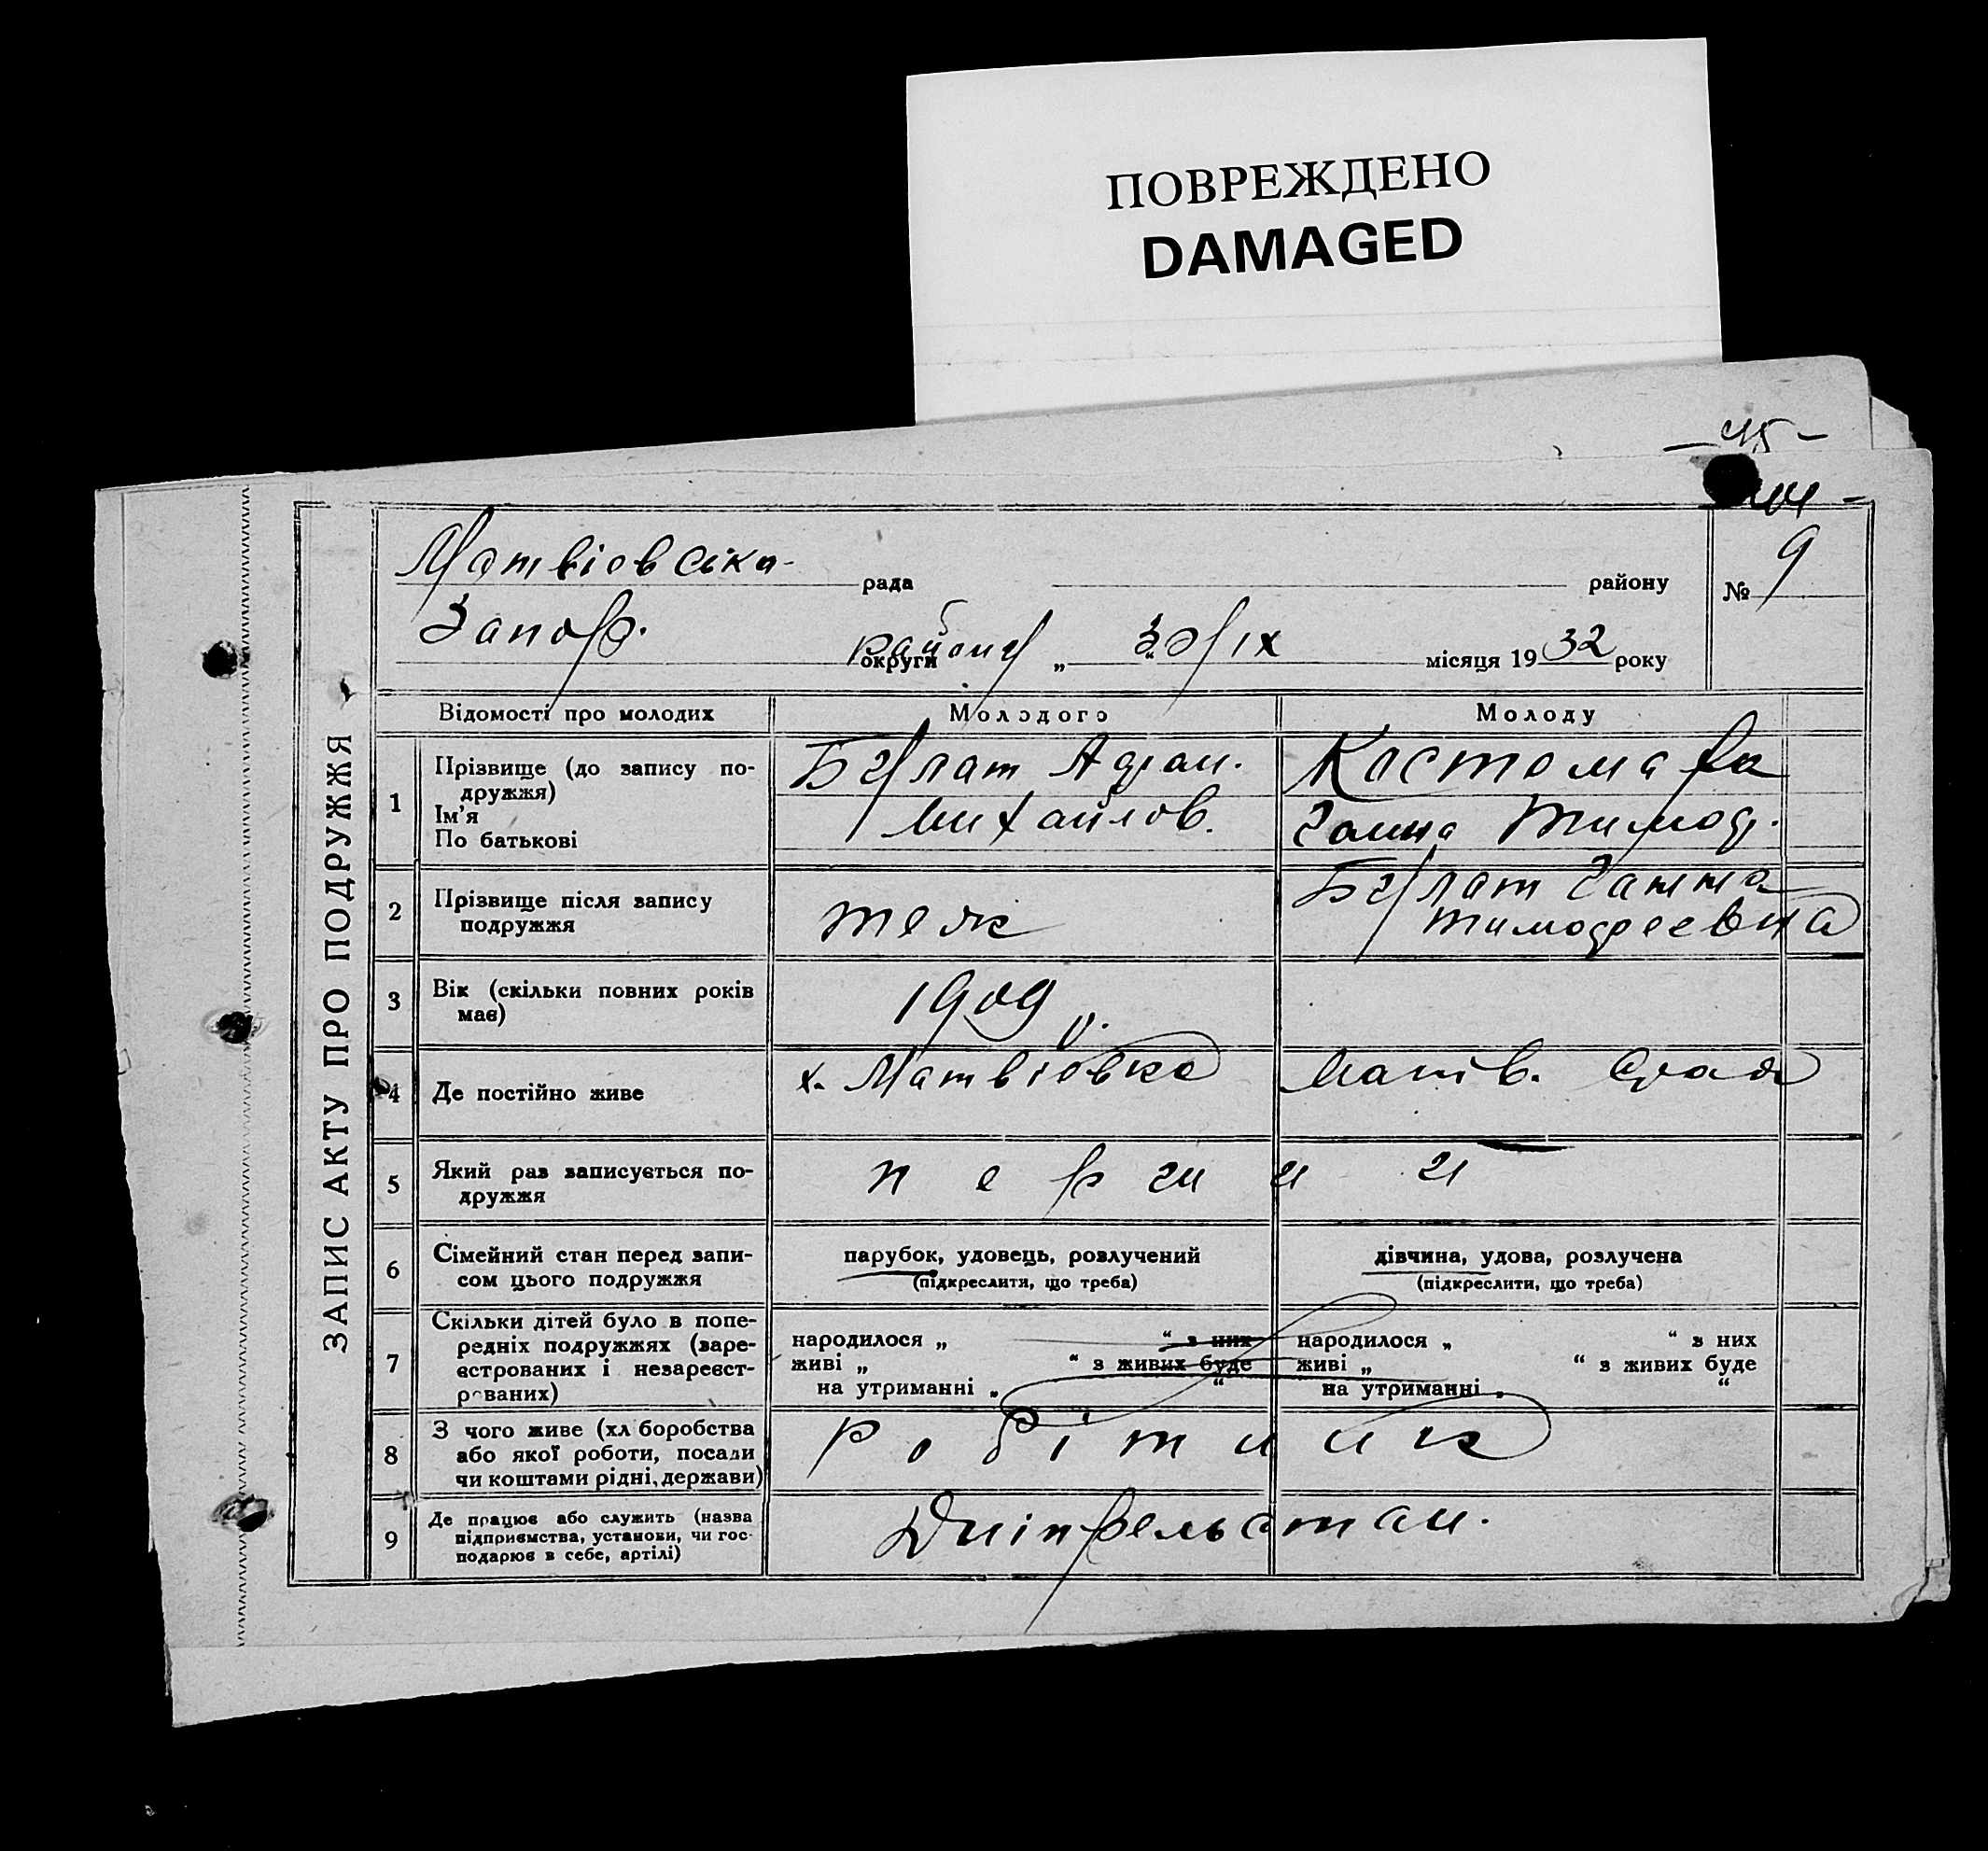 ПОВРЕЖДЕНО
DAMAGED
-45-
ЗАПИС АКТУ ПРО ПОДРУЖЖЯ
Матвіовська рада району № 9
Запор. округи району „ 30/ІХ “ місяця 1932 року
Відомості про молодих Молодого Молоду
1 Прізвище (до запису по-
дружжя)
Ім'я
По батькові
Булат Адіан.
Михайлов.
Костомаха
Ганна Тимоф.
2 Прізвище після запису
подружжя
теж
Булат Ганна
Тимофеевна
3 Вік (скільки повних років
має)
1909 р.
4 Де постійно живе х. Матвіовка Матів. Срада
5 Який раз записується по-
дружжя
перший
6 Сімейний стан перед запи-
сом цього подружжя
парубок, удовець, розлучений
(підкреслити, що треба)
дівчина, удова, розлучена
(підкреслити, що треба)
7 Скільки дітей було в попе-
редніх подружжях (заре-
єстрованих і незареєст-
рованих)
народилося „ “ з них
живі „ “ з живих буде
на утриманні „ “
народилося „ “ з них
живі „ “ з живих буде
на утриманні „ “
8 З чого живе (хліборобства
або якої роботи, посади
чи коштами рідні, держави)
робітник
9 Де працює або служить (назва
підприємства, установи, чи гос-
подарює в себе, артілі)
Дніпрельстан.